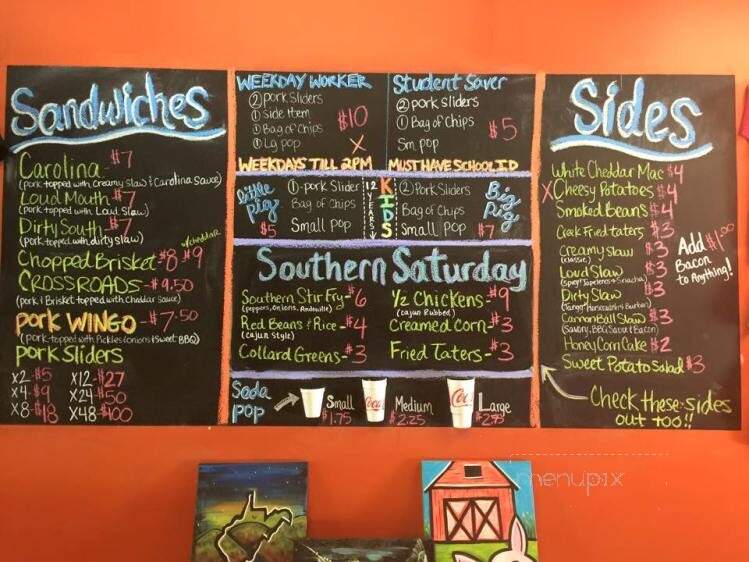 Sandwiches
Carolina - $7
(pork topped with creamy slaw & Carolina sauce)
Loud Mouth - $7
(pork topped with Loud Slaw)
Dirty South - $7
(pork topped with dirty slaw)
w/cheddar
Chopped Brisket - $8 $9
CROSSROADS - $9.50
(pork & Brisket topped with Cheddar Sauce)
pork WINGO - $7.50
(pork topped with Pickles onions & Sweet BBQ)
pork Sliders
x2 - $5 x12 - $27
x4 - $9 x24 - $50
x8 - $18 x48 - $100
WEEKDAY WORKER
② pork Sliders
① Side Item
① Bag of Chips
① Lg pop
$10
X
WEEKDAYS TILL 2PM
Student Saver
② pork sliders
① Bag of Chips
Sm. pop
$5
MUST HAVE SCHOOL ID
little Pig
$5
① pork Slider
Bag of Chips
Small pop
12 YEARS
KIDS
② Pork Sliders
Bag of Chips
Small pop
Big Pig
$7
Southern Saturday
Southern Stir Fry - $6
(peppers, Onions, Andouille)
Red Beans & Rice - $4
(cajun Style)
Collard Greens - $3
Yz Chickens - $9
(cajun Rubbed)
Creamed Corn - $3
Fried Taters - $3
Soda pop
Small $1.75
Coca
Medium $2.25
Large
Sides
White Cheddar Mac $4
X Cheesy Potatoes $4
Smoked Beans $4
Creek Fried taters $3
Creamy Slaw $3
(classic)
Loud Slaw $3
Dirty Slaw $3
CannonBall Slaw $3
(Savory, BBQ Sauce & Bacon)
Honey Corn Cake $2
Sweet Potato Salad $3
Add $1.00
Bacon
to Anything!
Check these sides
out too!!
menupix